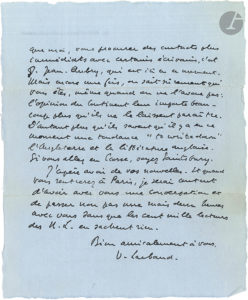 que moi, vous procurer des contacts plus
immédiats avec certains écrivains, c'est
G. Jean-Aubry, qui est ici en ce moment.
Mais encore une fois, on sait sûrement qui
vous êtes, même quand on ne l'avoue pas.
l'opinion du Continent leur importe beau-
coup plus qu'ils ne le laissent paraître.
D'autant plus qu'ils savent qu'il y a en ce
moment une tendance
l'Angleterre et la littérature anglaise.
Si vous allez en Corse, voyez Saintsbury.
J'espère avoir de vos nouvelles. Et quand
vous rentrerez à Paris, je serai content
d'avoir avec vous une conversation et
de passer non pas une mais deux heures
avec vous sans que les cent mille lecteurs
des N. L. en sachent rien.
Bien amicalement à vous.
V. Larbaud.